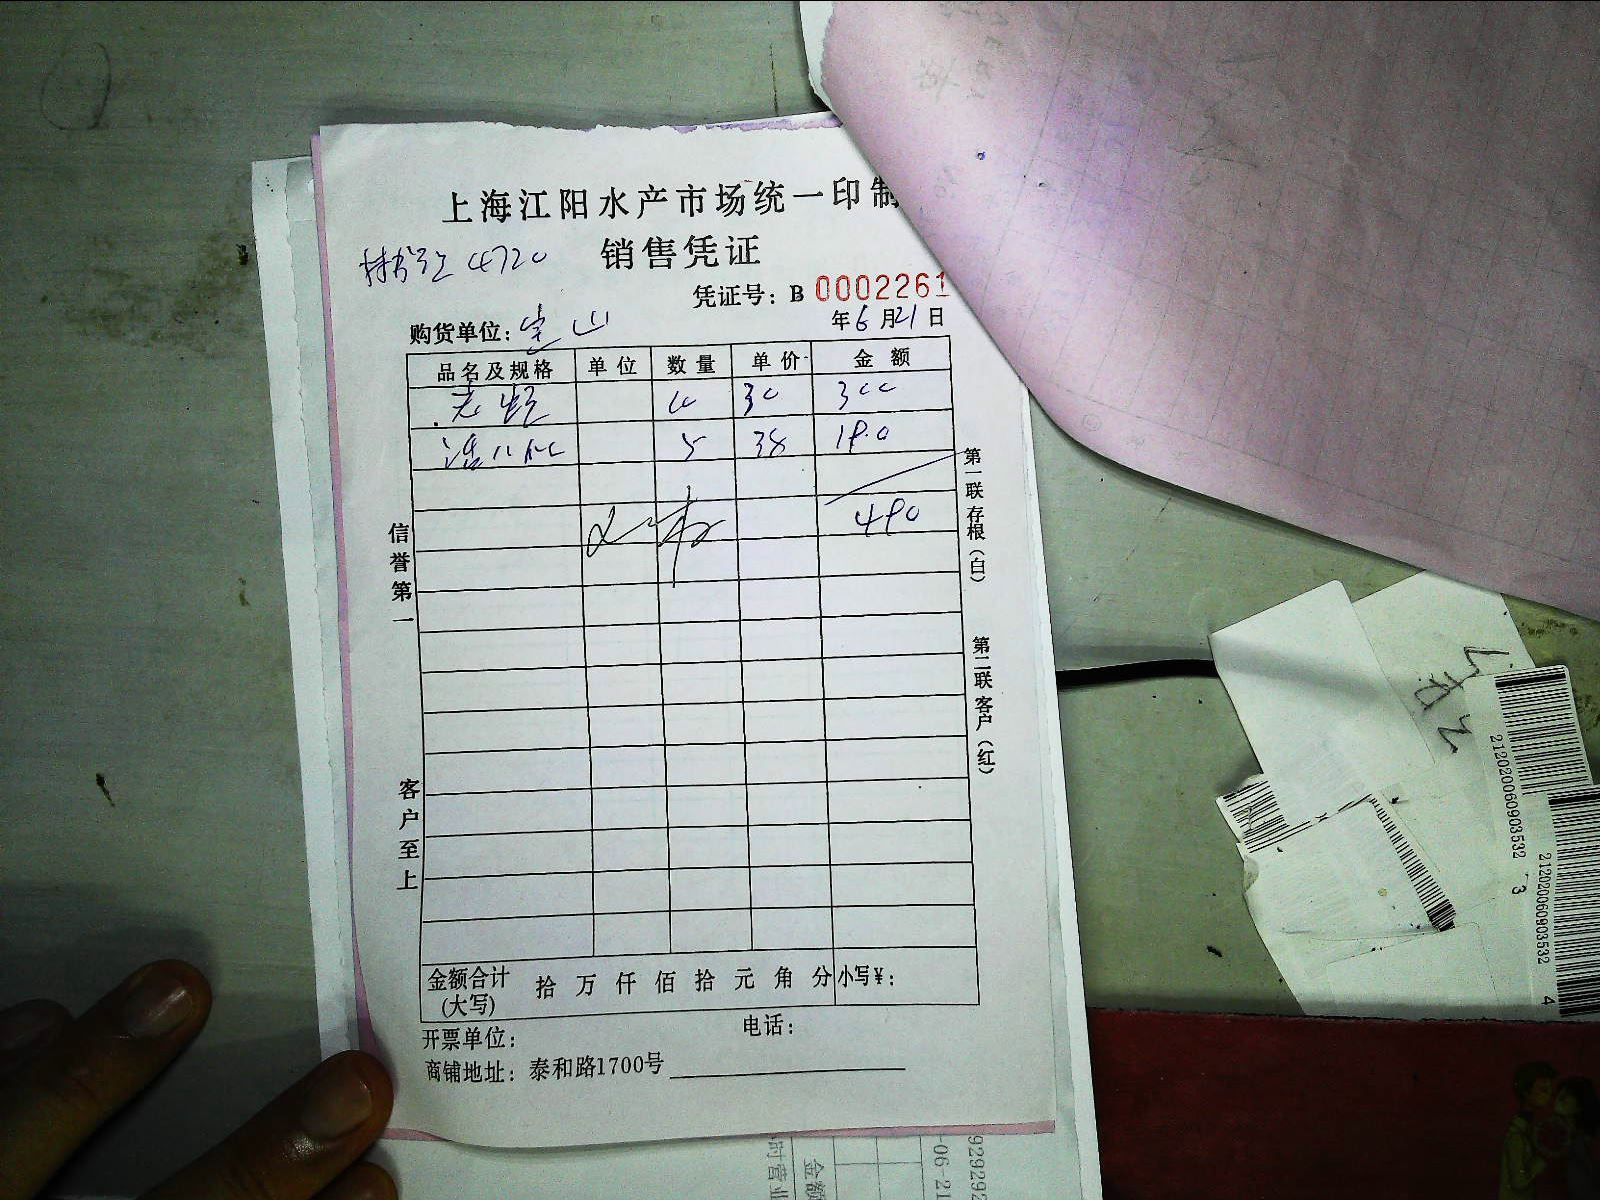 上海江阳水产市场统一印制
销售凭证
4720
凭证号：B 0002261
购货单位：宝山
年6月21日
品名及规格 单位 数量 单价 金额
10 30 300
5 38 190
490
信誉第一
客户至上
第一联存根（白）
第二联客户（红）
金额合计(大写) 拾 万 仟 佰 拾 元 角 分 小写¥：
开票单位： 电话：
商铺地址：泰和路1700号
212020060903532
3
212020060903532
4
金额
-06-21
929292